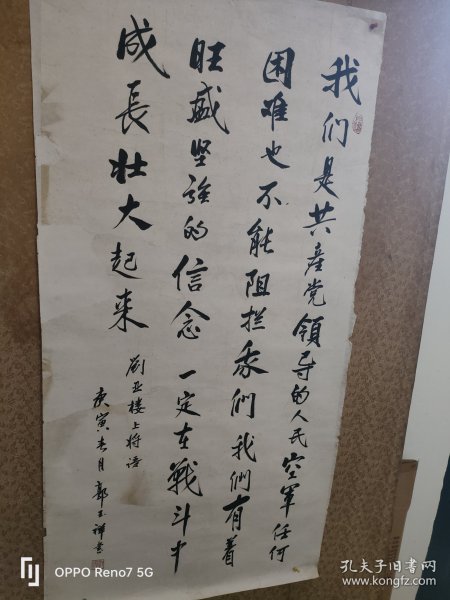 我们是共產党領导的人民空軍任何
困难也不能阻拦我們我們有着
旺盛坚強的信念一定在戰斗中
成長壮大起来
劉亚楼上将语
庚寅春月郭玉祥書
OPPO Reno7 5G
孔夫子旧书网
www.kongfz.com